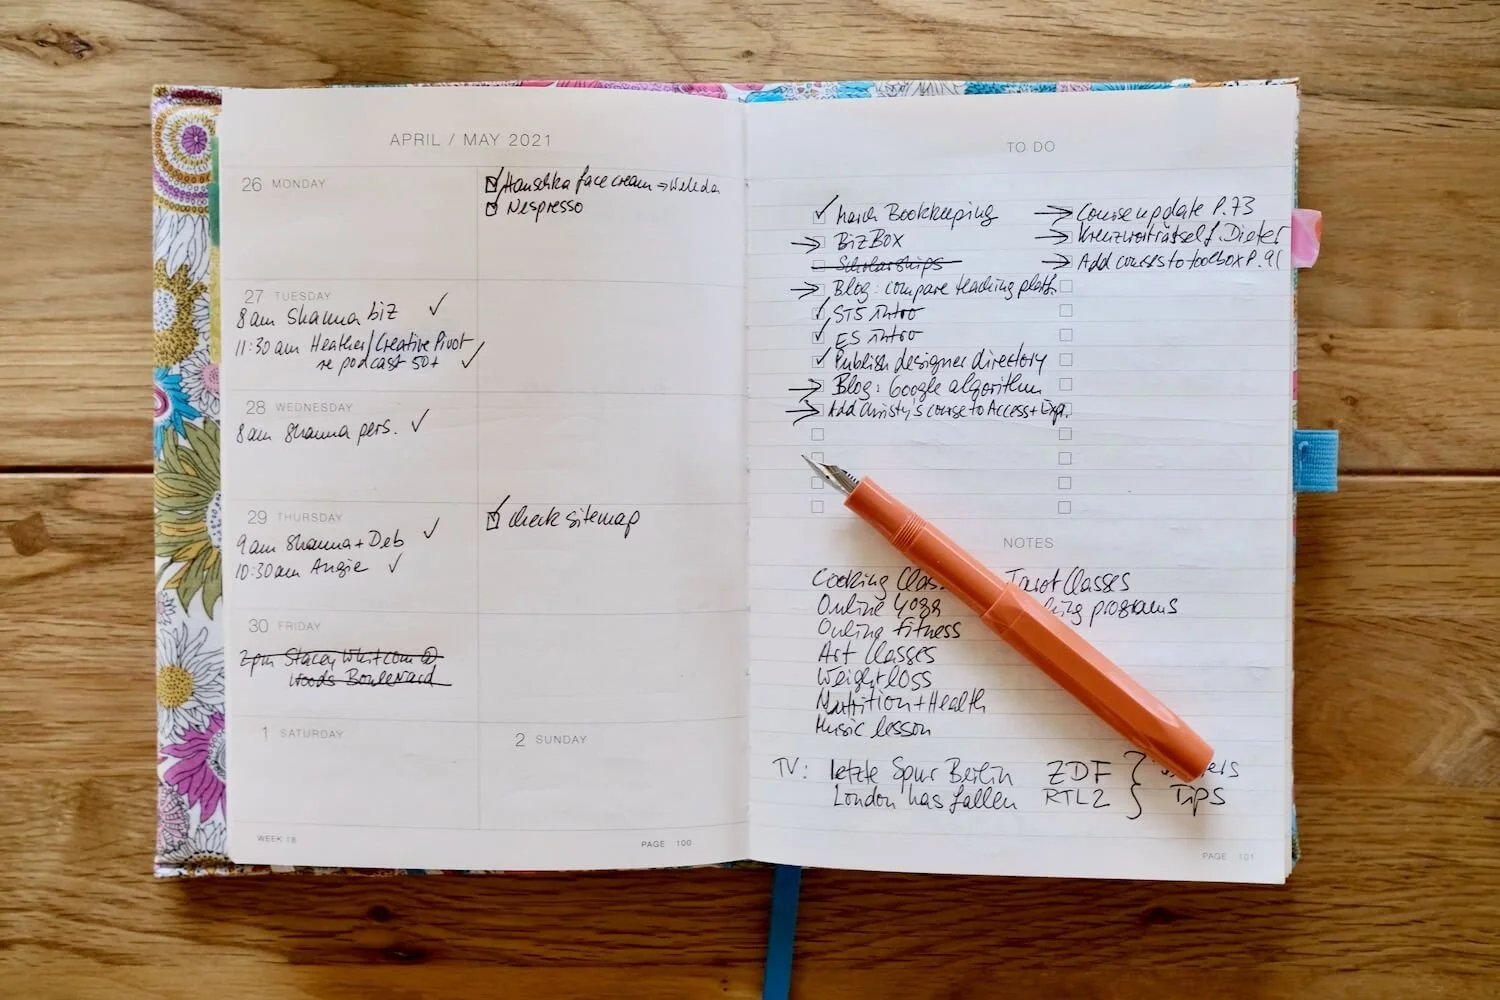 APRIL / MAY 2021
26 MONDAY
Hauschka face cream → Weleda
Nespresso
27 TUESDAY
8am Shanna biz
11:30am Heather/Creative Pivot
re podcast 50+
28 WEDNESDAY
8am Shanna pers.
29 THURSDAY
9am Shanna + Deb
10:30am Angie
check sitemap
30 FRIDAY
2pm Stacey Whitcom @
Woods Boulevard
1 SATURDAY
2 SUNDAY
WEEK 18
PAGE 100
TO DO
March Bookkeeping
BizBox
Scholarships
Blog: compare teaching platf.
ST5 intro
ES intro
Publish designer directory
Blog: Google algorithm
Add Christy's course to Access + Exp.
Course update P.73
Kreuzworträtsel f. Dieter
Add courses to toolbox P.91
NOTES
Cooking Tarot Classes
Online Yoga programs
Online fitness
Art Classes
Weightloss
Nutrition + Health
Music lesson
TV: letzte Spur Berlin ZDF }
London has fallen RTL2 } Tips
PAGE 101